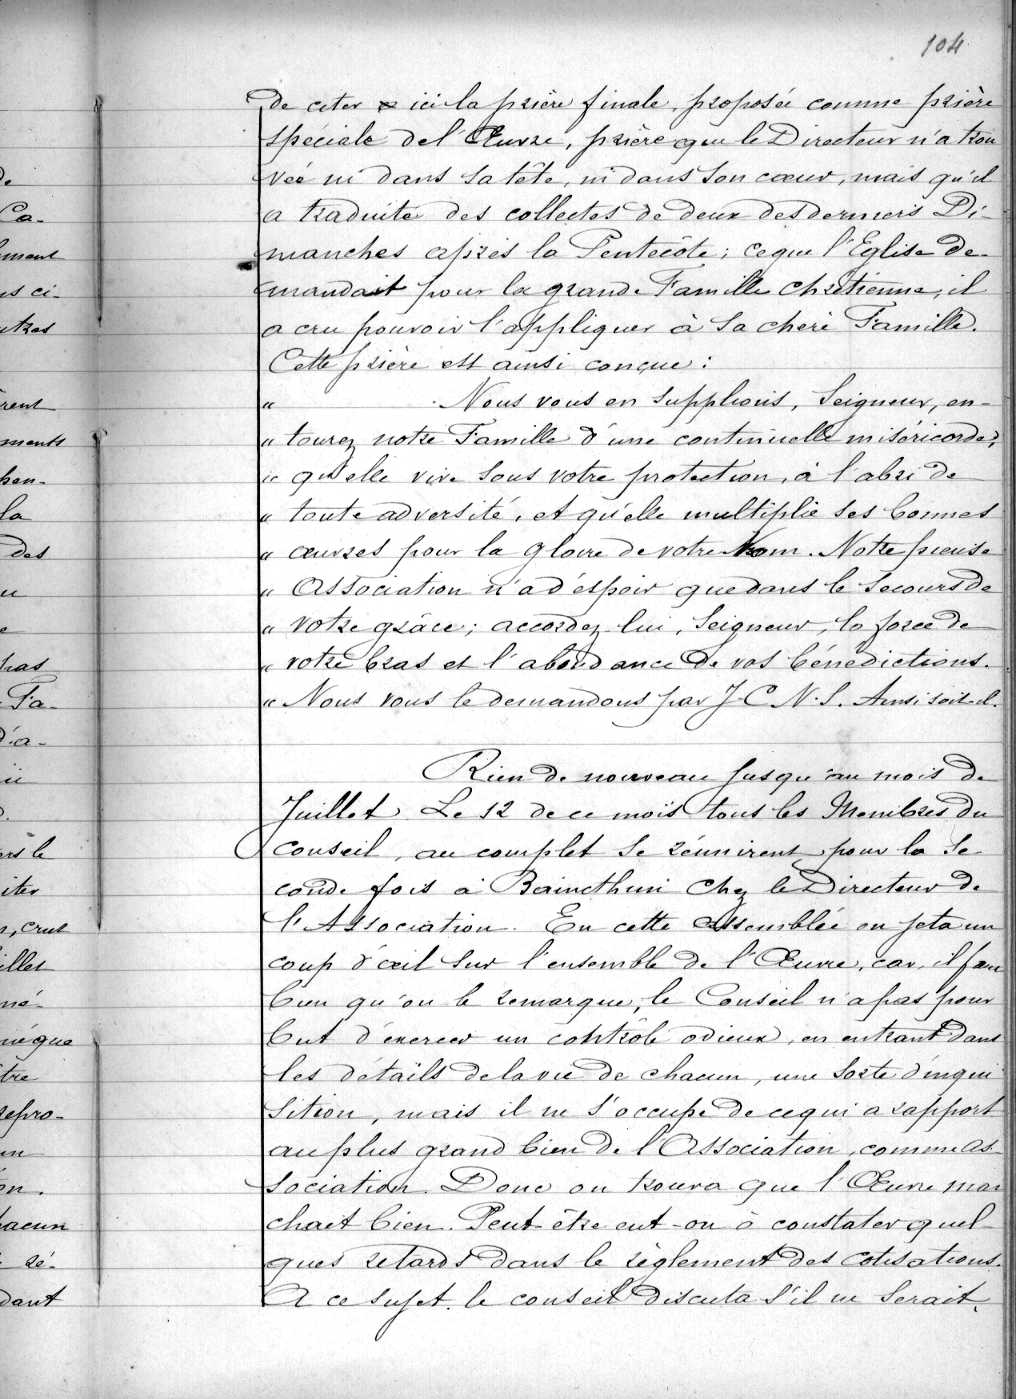 104
de citer ici la prière finale proposée comme prière
spéciale de l'Œuvre, prière que le Directeur n'a trou
vée ni dans sa tête, ni dans son cœur, mais qu'il
a traduite des collectes de deux des derniers Di-
manches après la Pentecôte; ce que l'Eglise de-
mandait pour la grande Famille chrétienne, il
a cru pouvoir l'appliquer à sa chère Famille.
Cette prière est ainsi conçue:
" Nous vous en supplions, Seigneur, en-
" tourez notre Famille d'une continuelle miséricorde,
" qu'elle vive sous votre protection, à l'abri de
" toute adversité, et qu'elle multiplie ses bonnes
" œuvres pour la gloire de votre Nom. Notre pieuse
" Association n'a d'espoir que dans le secours de
" votre grâce; accordez-lui, Seigneur, la force de
" votre bras et l'abondance de vos bénédictions.
" Nous vous le demandons par J-C N.S. Ainsi soit-il.
Rien de nouveau jusqu'au mois de
Juillet. Le 12 de ce mois tous les Membres du
Conseil, au complet se réunirent pour la se
conde fois à Baincthun chez le Directeur de
l'Association. En cette assemblée on jeta un
coup d'œil sur l'ensemble de l'Œuvre, car, il faut
bien qu'on le remarque, le Conseil n'a pas pour
but d'exercer un contrôle odieux, en entrant dans
les détails de la vie de chacun, une sorte d'inqui
sition, mais il ne s'occupe de ce qui a rapport
au plus grand bien de l'Association, comme As
sociation. Donc on trouva que l'Œuvre mar
chait bien. Peut-être eut-on à constater quel
ques retards dans le règlement des cotisations.
A ce sujet le conseil discuta s'il ne serait
de
Ca-
ment
ci-
utres
rent
ments
la
des
pas
Fa-
d'a-
le
crut
né-
que
tre
repro-
un
on.
hacun
ré-
dant